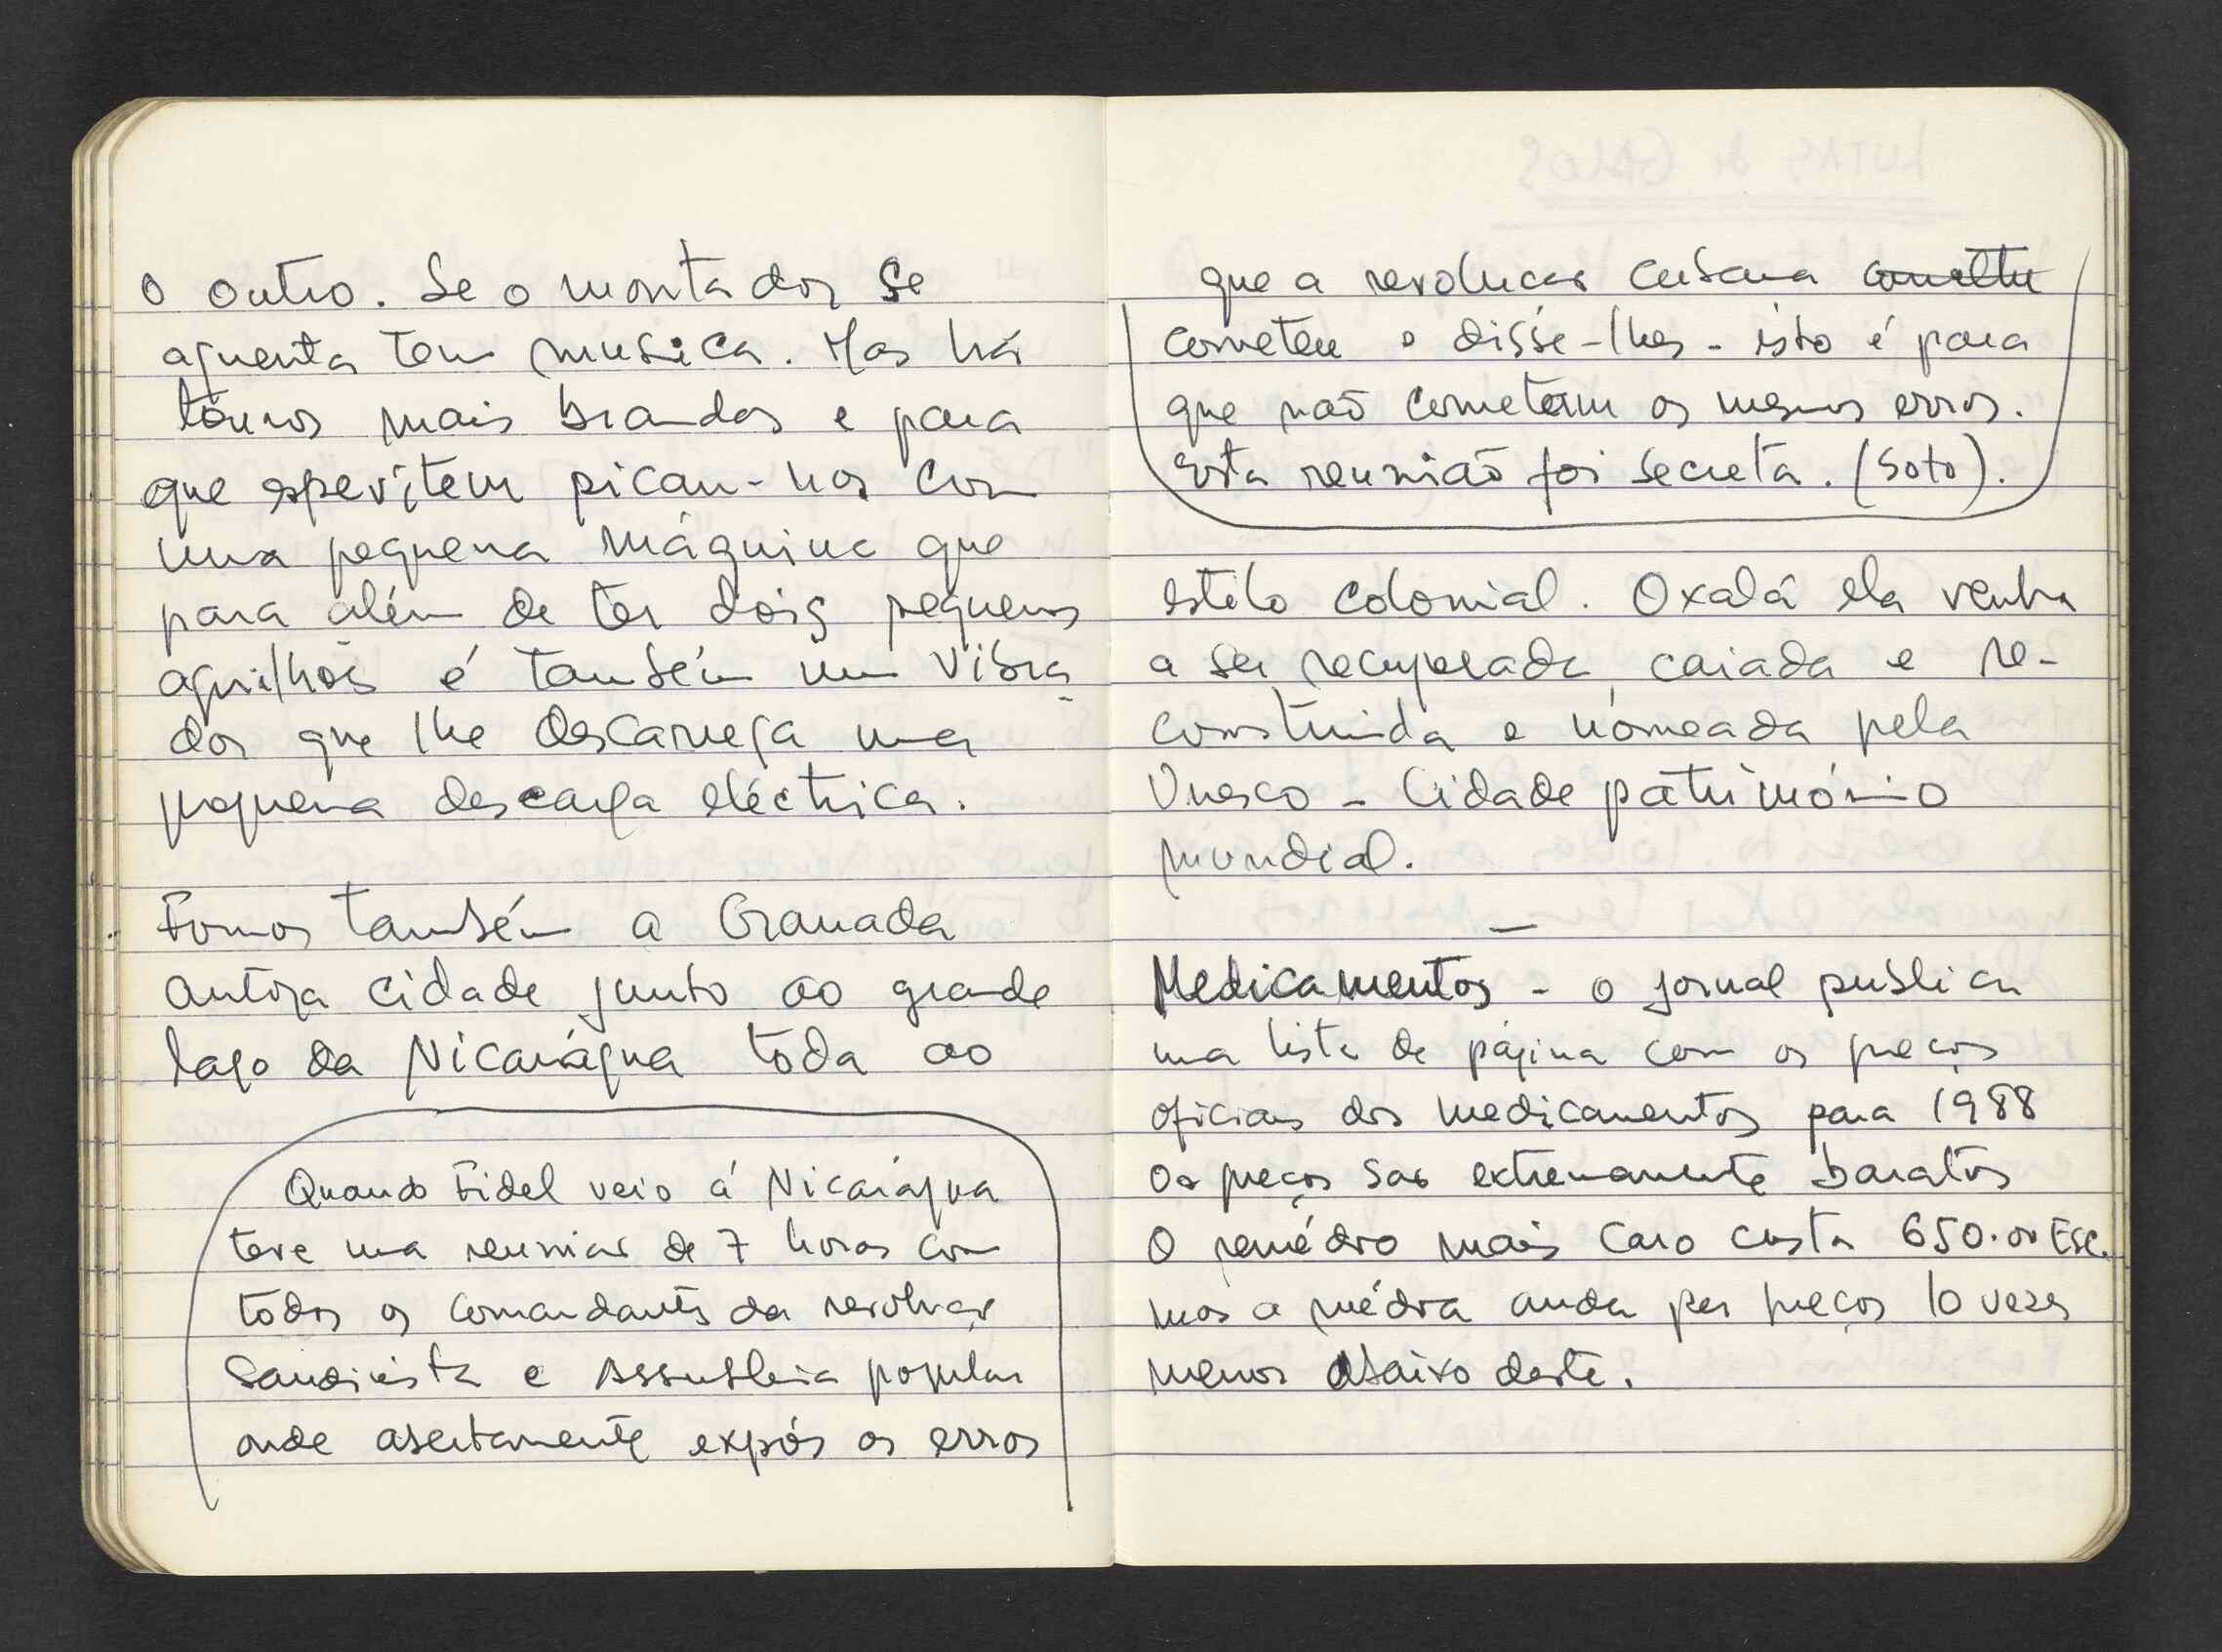 o outro. Se o montador se
aguenta tem musica. Mas há
touros mais brandos e para
que espevitem picam-nos com
uma pequena máquina que
para além de ter dois pequenos
aguilhões é também um vibra-
dor que lhe descarrega uma
pequena descarga eléctrica.
Fomos também a Granada
antiga cidade junto ao grande
lago da Nicarágua toda ao
Quando Fidel veio á Nicarágua
teve uma reunião de 7 horas com
todos os comandantes da revolução
Sandinista e Assembleia popular
onde abertamente expôs os erros
que a revolucao cubana
cometeu e disse-lhes - isto é para
que não cometam os mesmos erros.
Esta reunião foi secreta. (Soto).
estilo colonial. Oxalá ela venha
a ser recuperada, caiada e re-
construida e nomeada pela
Unesco - Cidade património
mundial.
—
Medicamentos - o jornal publica
uma lista de página com os preços
oficiais dos medicamentos para 1988
Os preços sao extremamente baratos
O remédio mais caro custa 650.00 Esc.
mas a média anda por preços 10 vezes
menos abaixo deste.
LUTAS de GALOS